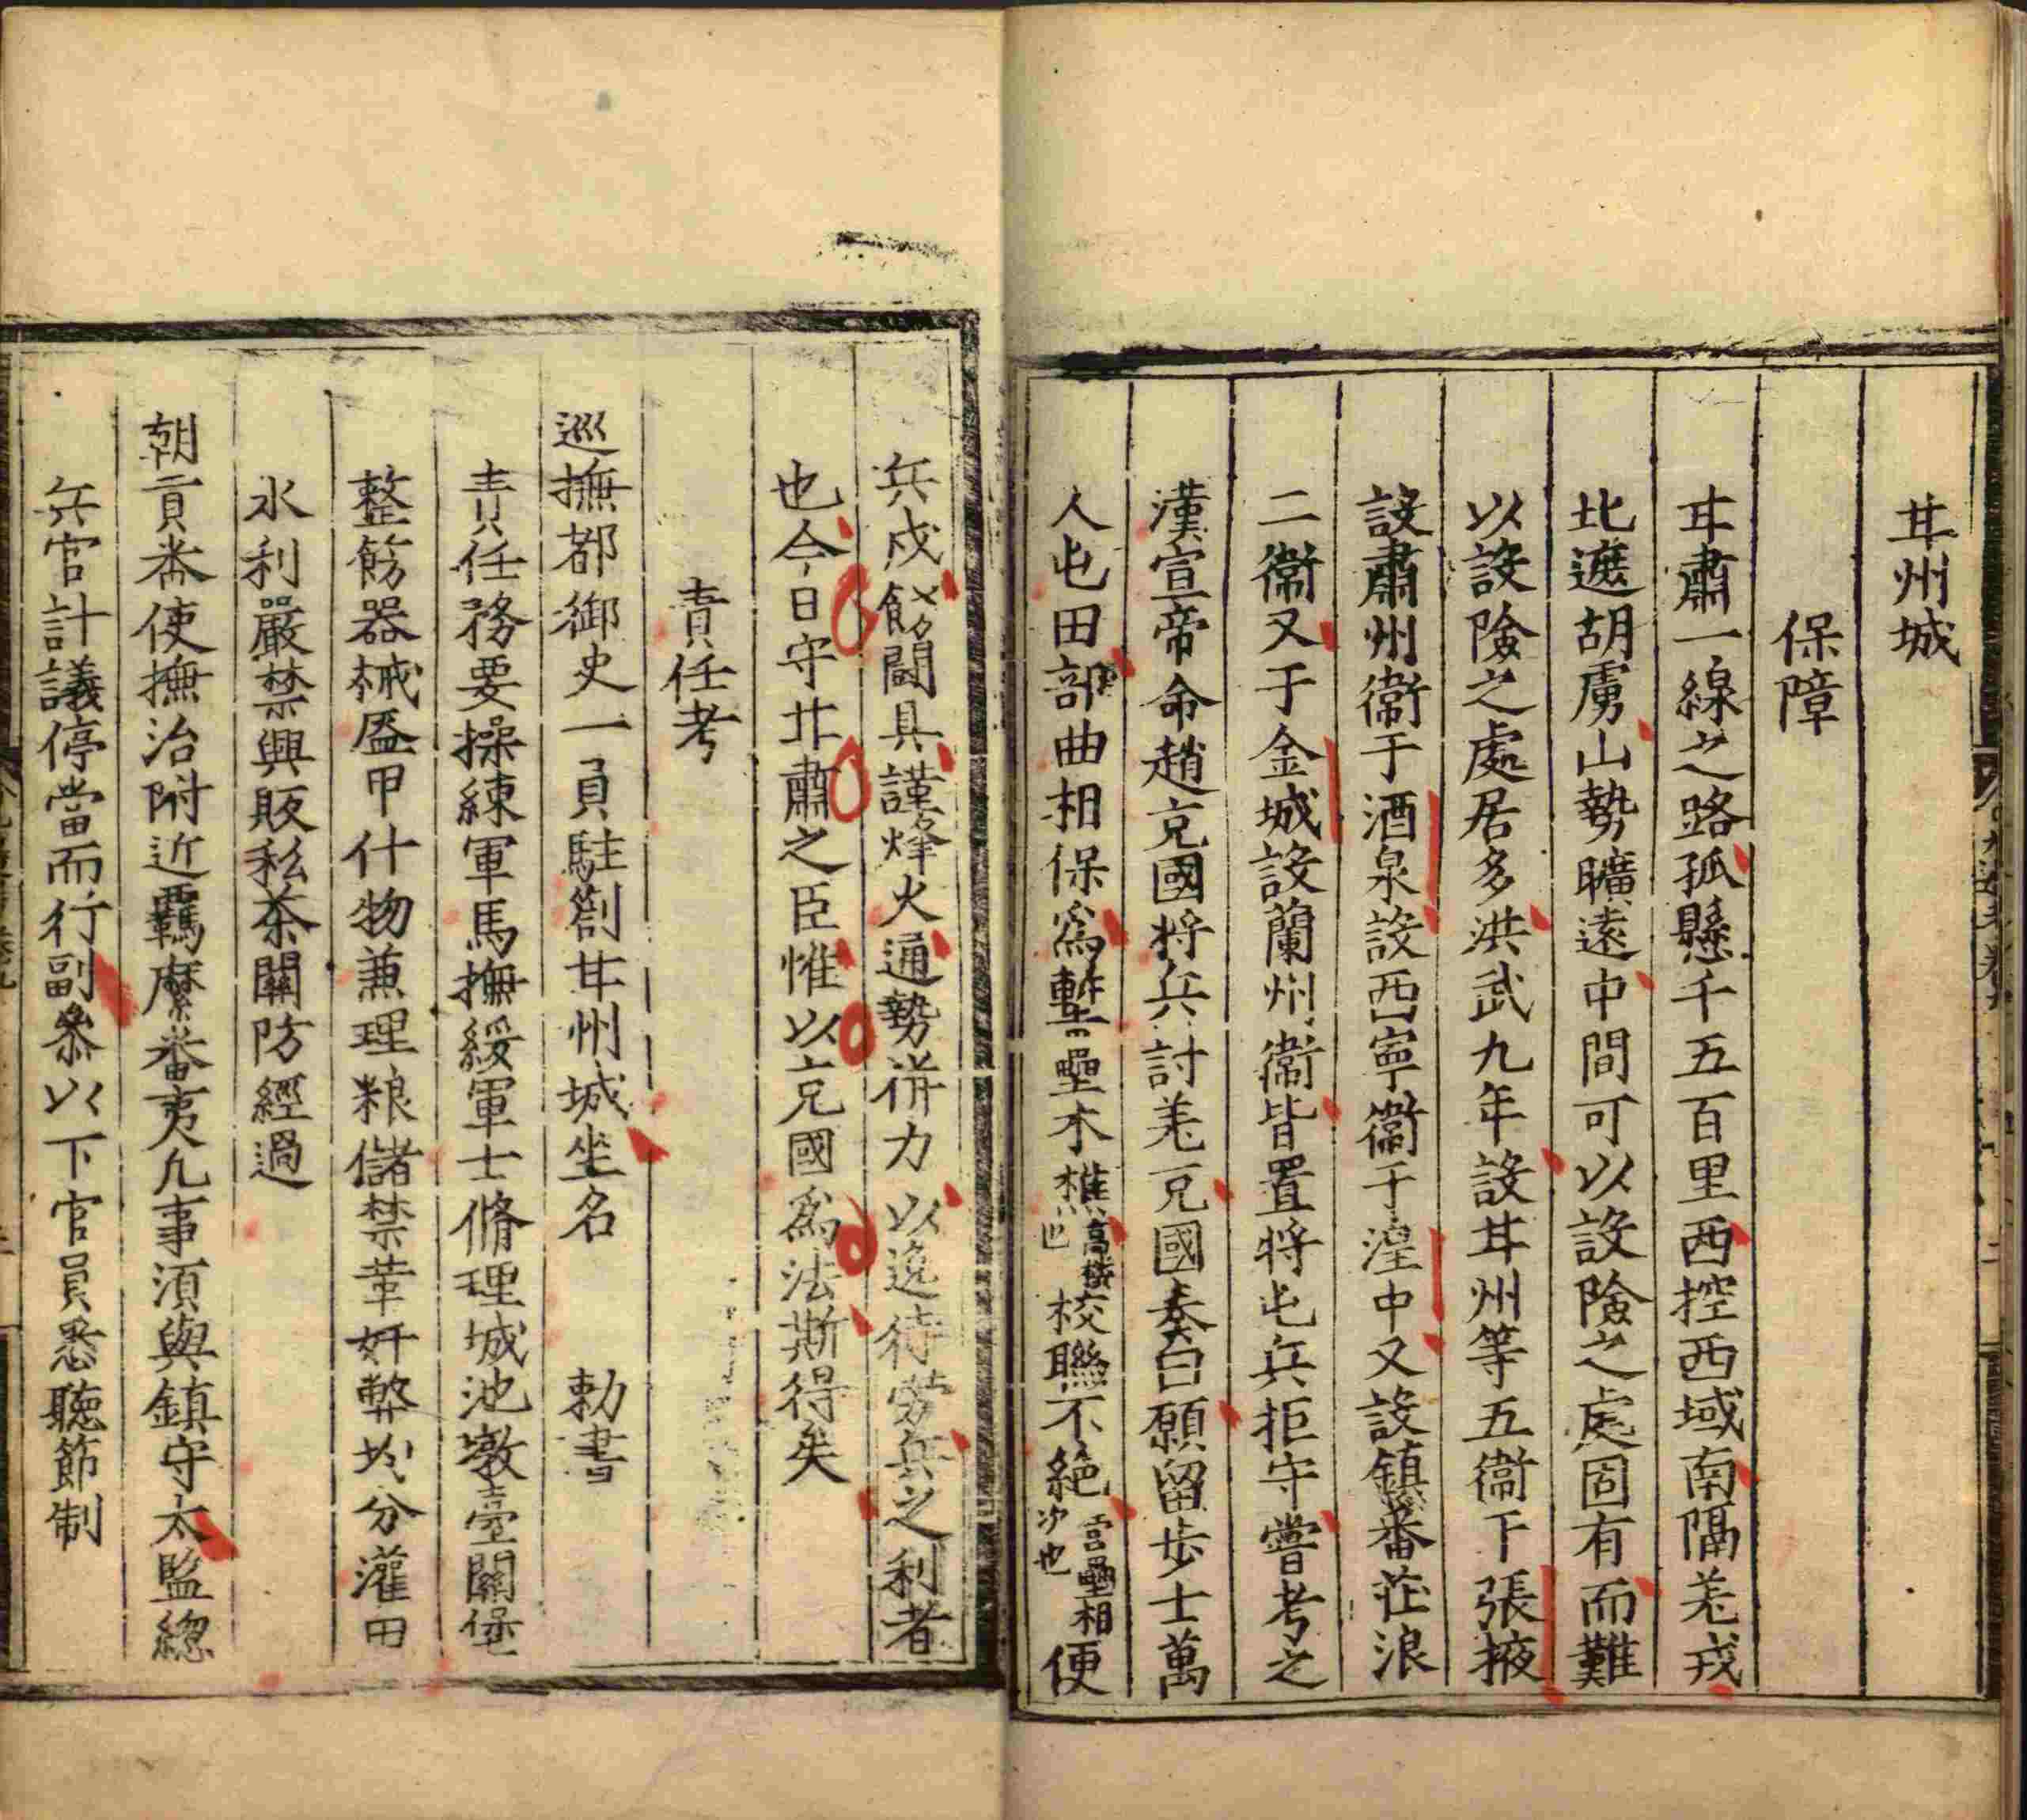 甘州城
保障
甘肅一線之路孤懸千五百里西控西域南隔羌戎
北遮胡虜山勢曠遠中間可以設險之處固有而難
以設險之處居多洪武九年設甘州等五衛于張掖
設肅州衛于酒泉設西寧衛于湟中又設鎮番莊浪
二衛又于金城設蘭州衛皆置將屯兵拒守嘗考之
漢宣帝命趙充國將兵討羌充國奏曰願留步士萬
人屯田部曲相保爲塹壘木樵高樓也校聯不絶營壘相次也便
兵戍飭鬪具謹烽火通勢併力以逸待勞兵之利者
也今日守甘肅之臣惟以充國爲法斯得矣
責任考
巡撫都御史一員駐劄甘州城坐名勅書
責任務要操練軍馬撫綏軍士脩理城池墩臺關堡
整飭器械盔甲什物兼理粮儲禁革奸弊均分灌田
水利嚴禁興販私茶關防經過
朝貢番使撫治附近羈縻番夷凡事須與鎮守太監總
兵官計議停當而行副叅以下官員悉聽節制